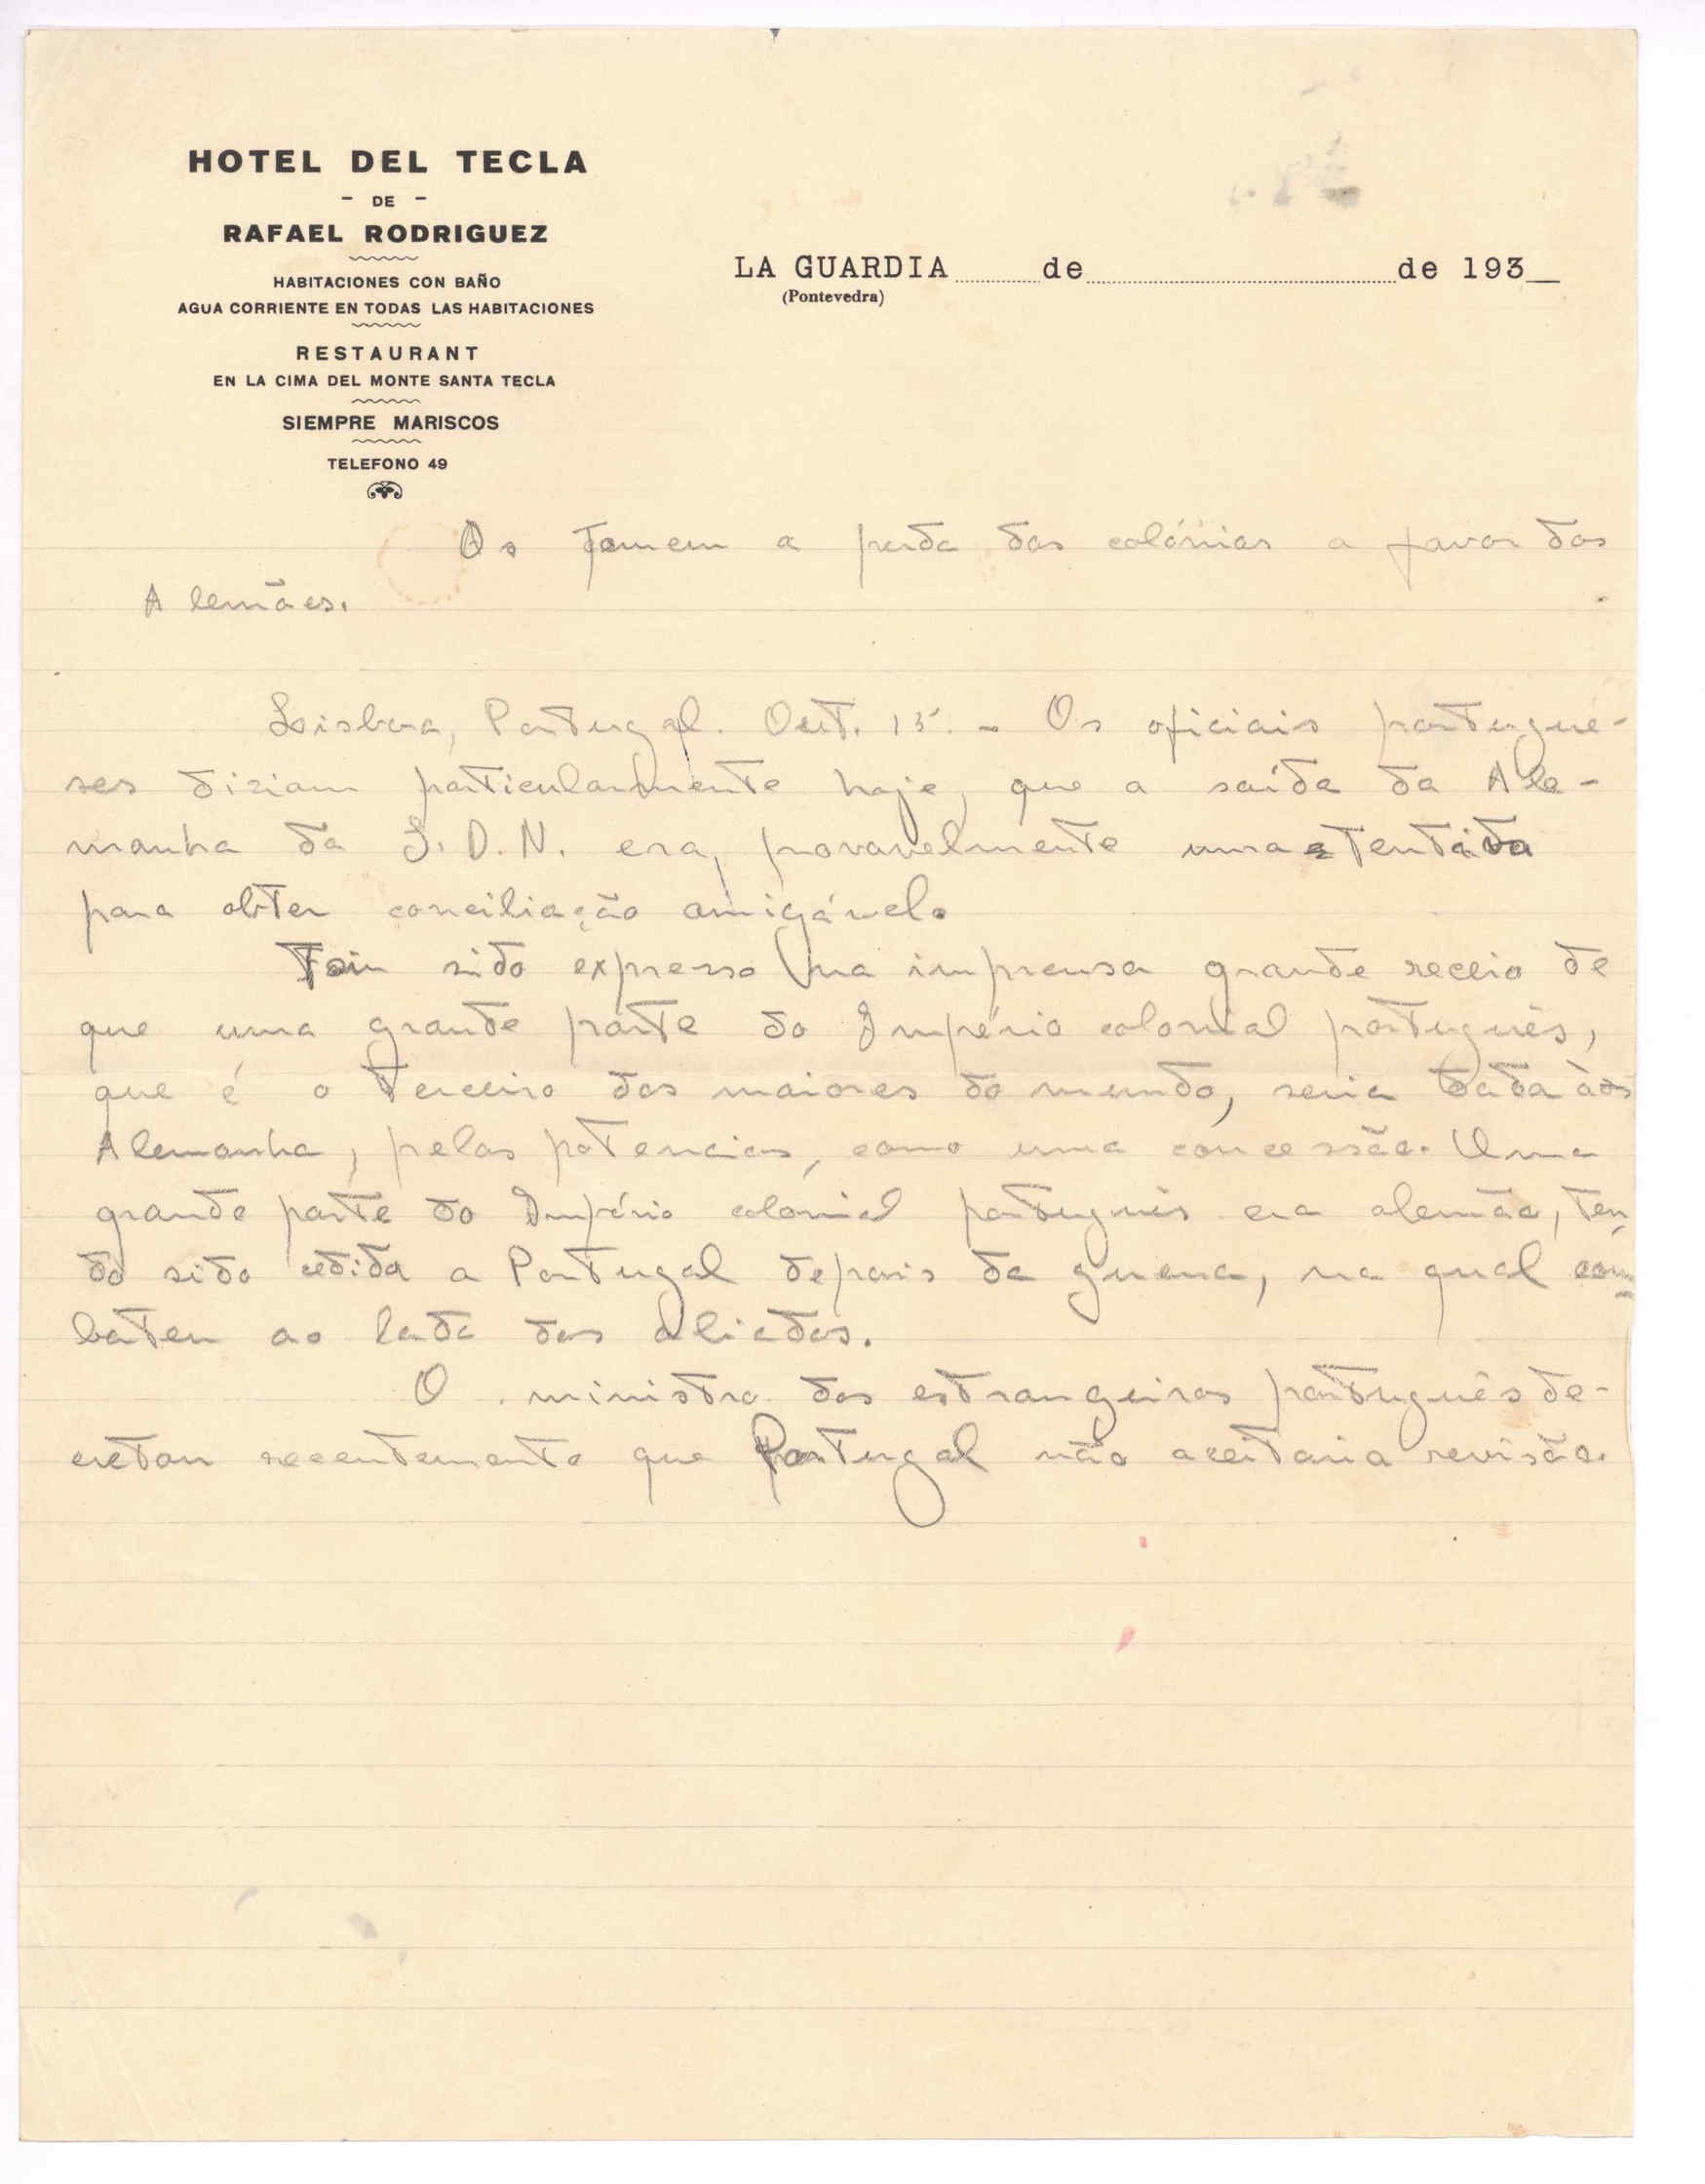 HOTEL DEL TECLA
- DE -
RAFAEL RODRIGUEZ
HABITACIONES CON BAÑO
AGUA CORRIENTE EN TODAS LAS HABITACIONES
RESTAURANT
EN LA CIMA DEL MONTE SANTA TECLA
SIEMPRE MARISCOS
TELEFONO 49
LA GUARDIA de de 193_
(Pontevedra)
Os temem a perda das colónias a favor dos
Alemães.
Lisboa, Portugal. Out. 15. - Os oficiais portugue-
ses diziam particularmente hoje, que a saída da Ale-
manha da S. D. N. era, provavelmente uma
para obter conciliação amigável.
Tem sido expresso na imprensa grande receio de
que uma grande parte do Império colonial português,
que é o terceiro dos maiores do mundo, seria dada
Alemanha, pelas potencias, como uma concessão. Uma
grande parte do Império colonial português era alemão, ten
do sido cedida a Portugal depois da guerra, na qual com
bateu ao lado dos aliados.
O ministro dos estrangeiros português de-
cretou recentemente que Portugal não aceitaria revisão.